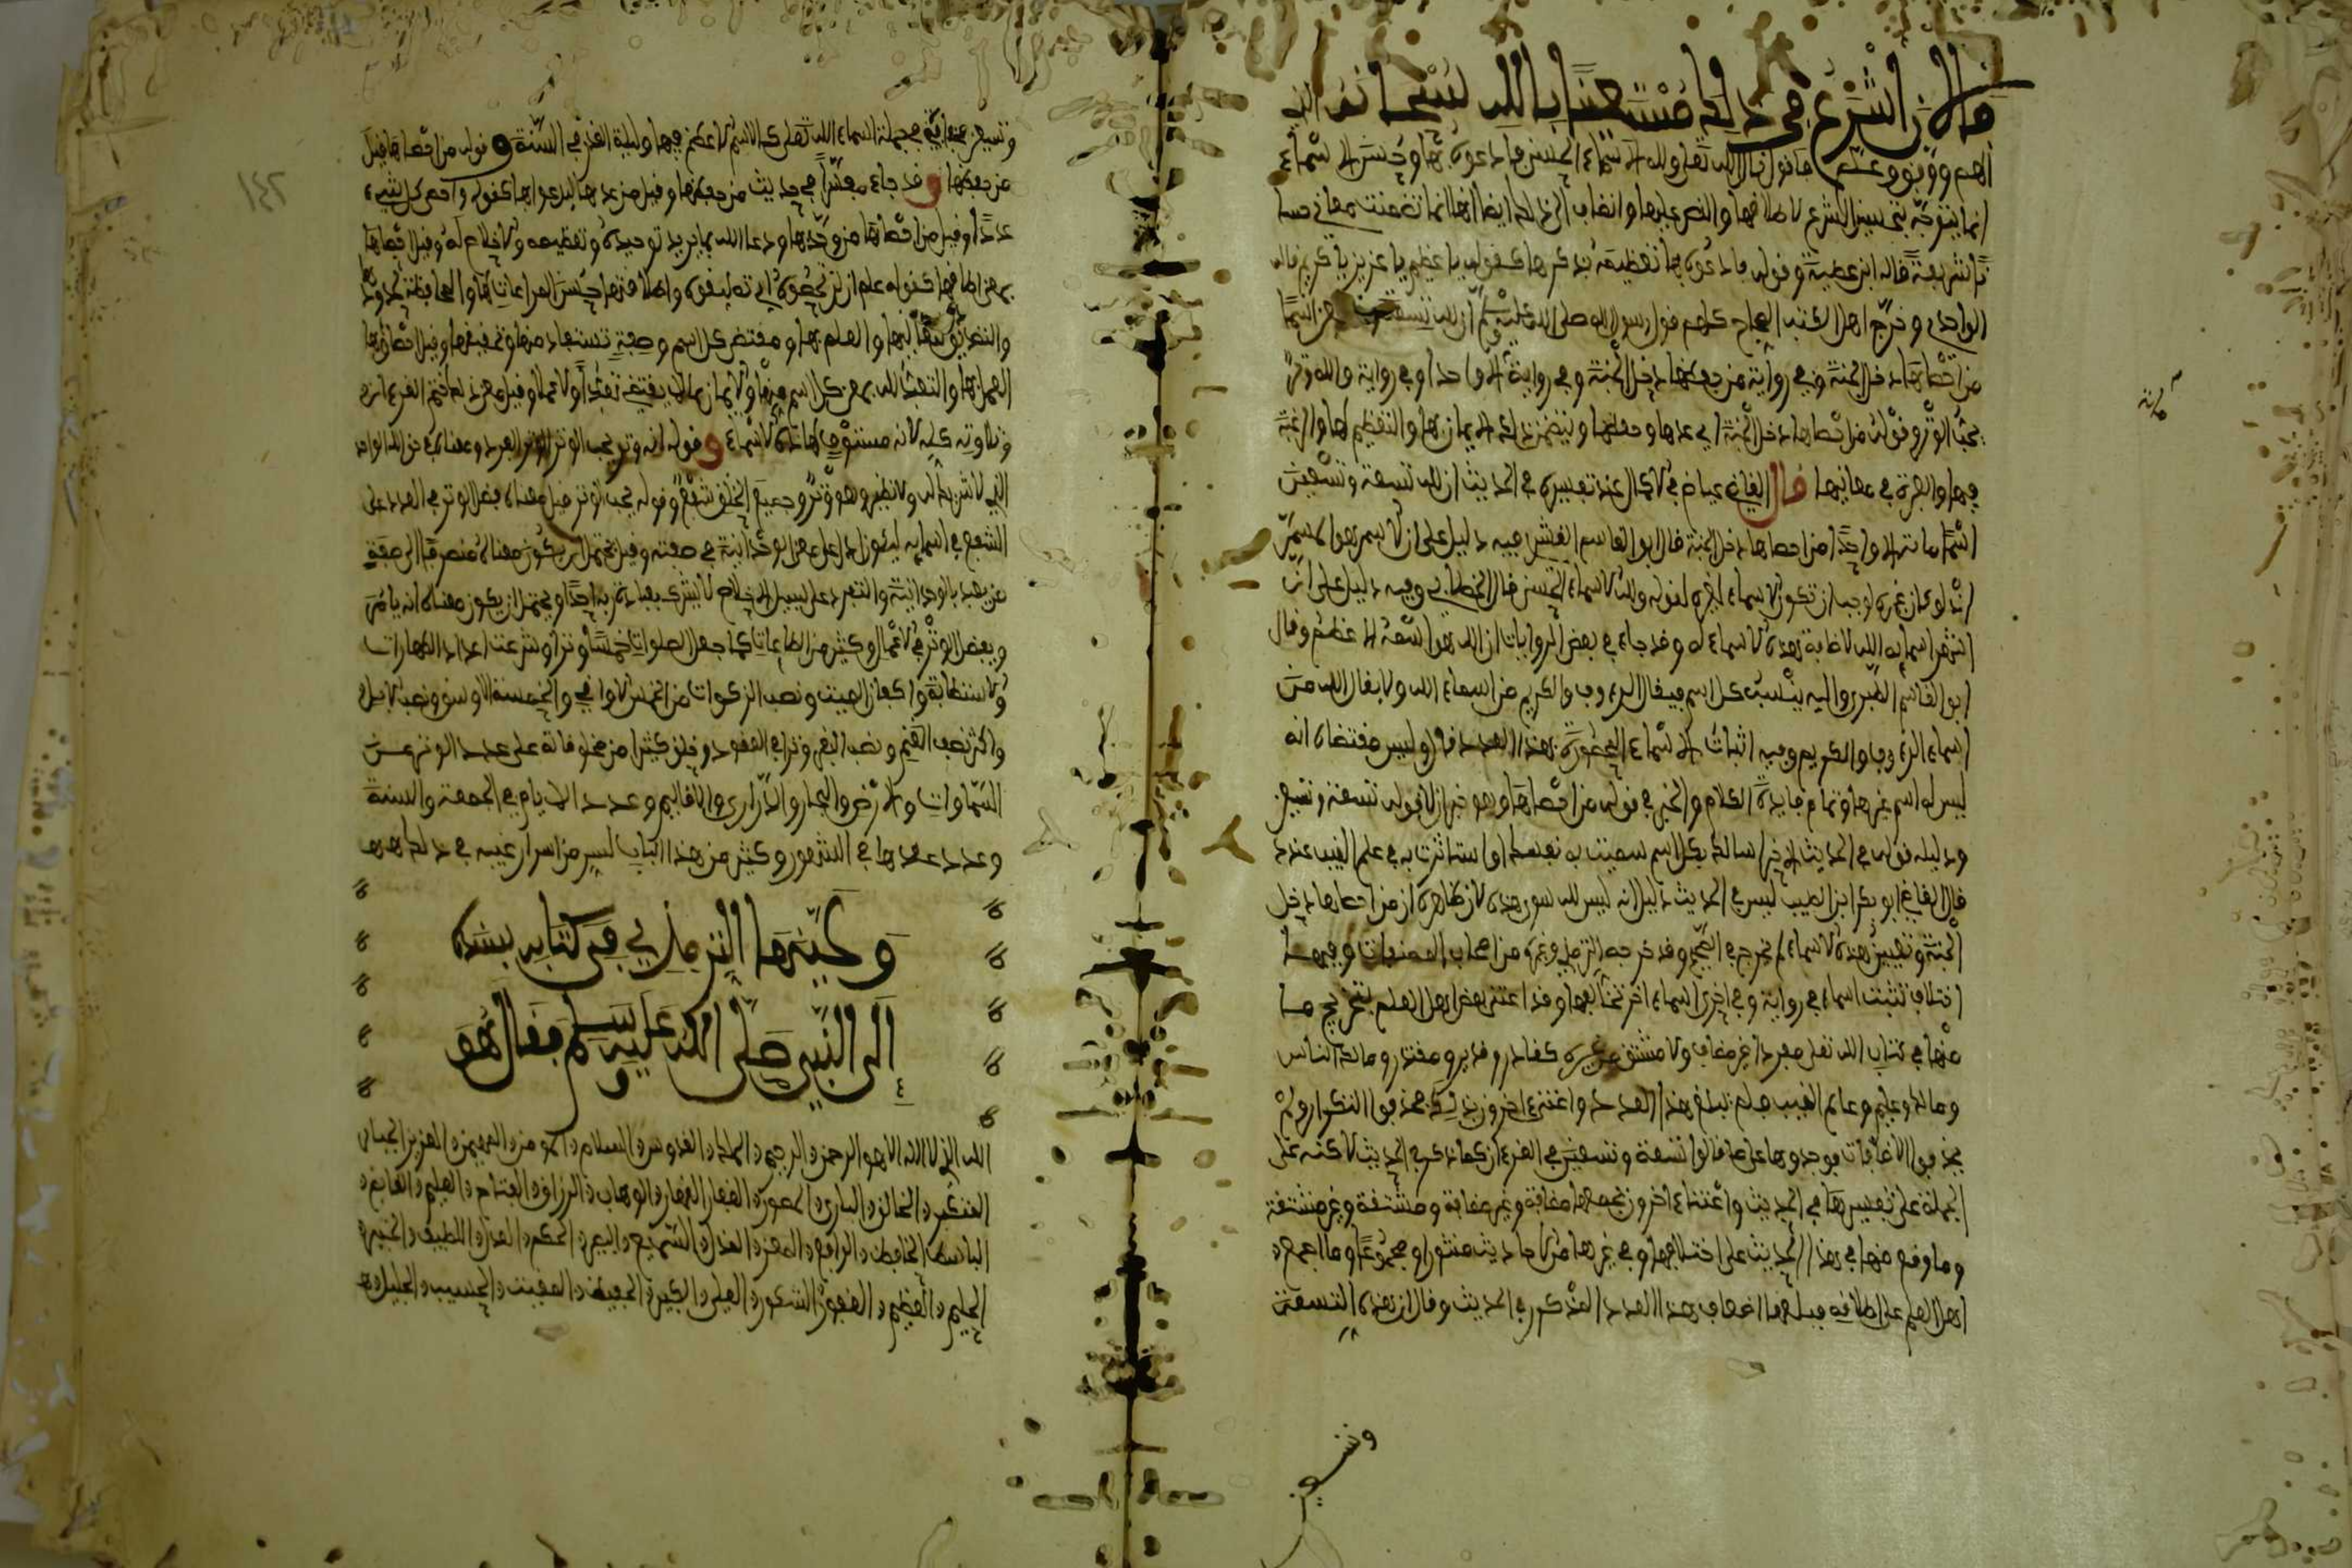 فالان اشرع في ذلك مستعينا بالله سبحانه الذي
الهم ووفق وعلم فاقول قال الله تعالى ولله الاسماء الحسنى فادعوه بها وحسن الاسماء
انما يتوجه بتحسين الشرع لاطلاقها والنص عليها وانضاف الى ذلك ايضا انها انما تضمنت معاني حسا
نا شريفة قاله ابن عطية وقوله فادعوه بها تعظيمه بذكرها كقوله يا عظيم يا عزيز يا كريم قاله
الواحدي وخرج اهل الكتب الصحاح كلهم قول رسول الله صلى الله عليه وسلم ان لله تسعة وتسعين اسما
من احصاها دخل الجنة وفي رواية من حفظها دخل الجنة وفي رواية الا واحدا وفي رواية والله وتر
يحب الوتر وقوله من احصاها دخل الجنة اي عدها وحفظها ويتضمن ذلك الايمان بها والتعظيم لها والرغبة
فيها والعبرة في معانيها قال القاضي عياض في الاكمال عند تفسيره في الحديث ان لله تسعة وتسعين
اسما مائة الا واحدا من احصاها دخل الجنة قال ابو القاسم القشيري فيه دليل على ان الاسم هو المسمى
اذ لو كان غيره لوجب ان تكون الاسماء لغيره لقوله ولله الاسماء الحسنى قال الخطابي وفيه دليل على ان
اشهر اسمائه الله لاضافة هذه الاسماء له وقد جاء في بعض الروايات ان الله هو اسمه الاعظم وقال
ابو القاسم الطبري واليه ينسب كل اسم فيقال الرءوف والكريم من اسماء الله ولا يقال الله من
اسماء الرءوف او الكريم وفيه اثبات الاسماء المحصورة بهذا العدد قال وليس مقتضاه انه
ليس له اسم غيرها وتمام فايدة الكلام والخبر في قوله من احصاها وهو خبر ان لا قوله تسعة وتسعين
ودليله قوله في الحديث الاخر اسالك بكل اسم سميت به نفسك او استاثرت به في علم الغيب عندك
قال القاضي ابو بكر ابن الطيب ليس في الحديث دليل انه ليس لله سوى هذه لان ظاهره ان من احصاها دخل
الجنة وتعيين هذه الاسماء لم يخرج في الصحيح وقد خرجه الترمذي وغيره من اصحاب المصنفات وفيها
اختلاف تثبت اسماء في رواية وفي اخرى اسماء اخر تخالفها وقد اعتنى بعض اهل العلم بتخريج ما
منها في كتاب الله تعلى مفردا غير مضاف ولا مشتق من غيره كقادر وقدير ومقتدر ومالك الناس
ومالك وعليم وعالم الغيب فلم تبلغ هذا العدد واعتنى اخرون بذلك فحذفوا التكرار ولم
يحذفوا الاضافات فوجدوها على ما قالوا تسعة وتسعين في القرءان كما ذكر في الحديث لاكنه على
الجملة على تفسيرها في الحديث واعتناء اخرون بجمعها مضافة وغير مضافة ومشتقة وغير مشتقة
وما وقع منها في هذا الحديث على اختلافها وفي غيرها من الاحاديث منثورا ومجموعا وما اجمع
اهل العلم على اطلاقه فبلغها اضعاف هذا العدد المذكور في الحديث وقال ان هذه التسعة
وتسعين
وتسعين مخفية في جملة اسماء الله تعلى كالاسم الاعظم فيها وليلة القدر في السنة وقوله من احصاها قيل
من حفظها وقد جاء مفسرا في حديث من حفظها وقيل من عدها ليدعو بها كقوله واحصى كل شيء
عددا وقيل من احصاها من وحدها ودعا الله بها يريد توحيده وتعظيمه والاخلاص له وقيل احصاها
بمعنى اطاقها كقوله علم ان لن تحصوه اي تطيقوه واطاقتها حسن المراعات لها والمحافظة لحدودها
والتصديق بمعانيها والعلم بها ومقتضى كل اسم وصفة تستفاد منها وتحقيقها وقيل احصاؤها
العمل بها والتعبد لله بمعنى كل اسم منها والايمان بما لا يقتضي تعبدا ولا عملا وقيل معنى ذلك ختم القرءان
وتلاوته كله لانه مستوف لهذه الاسماء وقوله انه وتر يحب الوتر الوتر الفرد ومعناه في حق الله الواحد
الذي لا شريك له ولا نظير وهو وتر وجميع الخلق شفع وقوله يحب الوتر قيل معناه فضل الوتر في العدد على
الشفع في اسمائه ليكون ادل على معنى الوحدانية في صفته وقيل يحتمل ان يكون معناه منصرفا الى صفة
من يعبد بالوحدانية والتفرد على سبيل الاخلاص لا يشرك بعبادة ربه احدا ويحتمل ان يكون معناه انه يامر
ويفضل الوتر في الاعمال وكثير من الطاعات كما جعل الصلوات خمسا وترا وشرعت اعداد الطهارات
والاستطابة واكفان الميت ونصب الزكوات من الخمس الاواقي والخمسة الاوسق ونصب الابل
واكثر نصب الغنم ونصب البقر وترا في العقود وخلق كثيرا من مخلوقاته على عدد الوتر فمن
السماوات والارض والبحار والذراري والاقاليم وعدد الايام في الجمعة والسنة
وعدد عقدها في الشهور وكثير من هذا الباب لسر من اسرار غيبه في ذلك
وعينها الترمذي في كتابه بسنده
الى النبي صلى الله عليه وسلم فقال هو
الله الذي لا اله الا هو الرحمن الرحيم الملك القدوس السلام المومن المهيمن العزيز الجبار
المتكبر الخالق الباري المصور الغفار القهار الوهاب الرزاق الفتاح العليم القابض
الباسط الخافض الرافع المعز المذل السميع البصير الحكم العدل اللطيف الخبير
الحليم العظيم الغفور الشكور العلي الكبير الحفيظ المقيت الحسيب الجليل